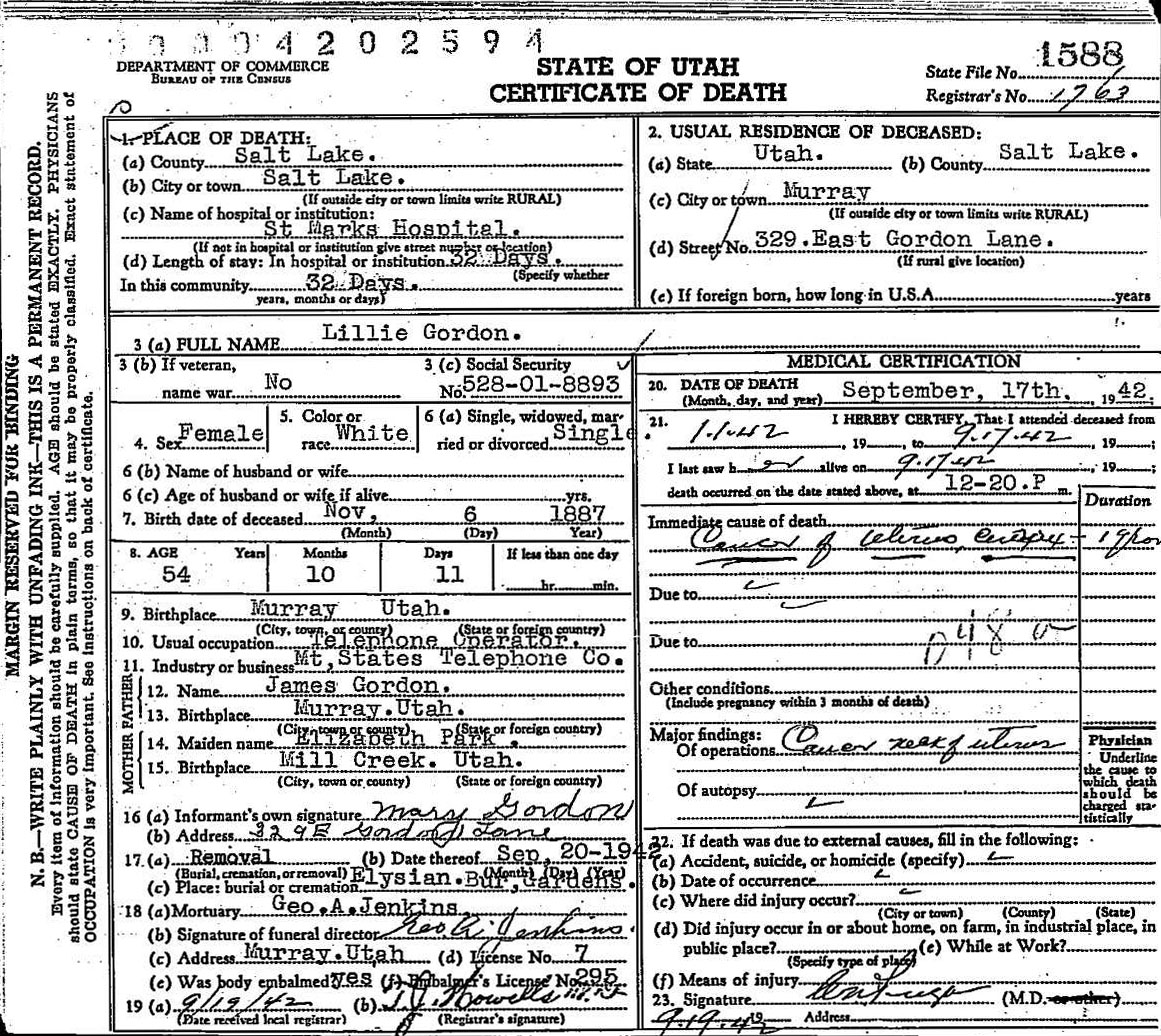 0004202594
DEPARTMENT OF COMMERCE
BUREAU OF THE CENSUS
STATE OF UTAH
CERTIFICATE OF DEATH
State File No. 1588
Registrar's No. 1763
MARGIN RESERVED FOR BINDING
N. B.—WRITE PLAINLY WITH UNFADING INK—THIS IS A PERMANENT RECORD.
Every item of information should be carefully supplied. AGE should be stated EXACTLY. PHYSICIANS
should state CAUSE OF DEATH in plain terms, so that it may be properly classified. Exact statement of
OCCUPATION is very important. See instructions on back of certificate.
1. PLACE OF DEATH:
(a) County Salt Lake.
(b) City or town Salt Lake.
(If outside city or town limits write RURAL)
(c) Name of hospital or institution:
St Marks Hospital.
(If not in hospital or institution give street number or location)
(d) Length of stay: In hospital or institution 32 Days.
(Specify whether
In this community 32 Days.
years, months or days)
2. USUAL RESIDENCE OF DECEASED:
(a) State Utah. (b) County Salt Lake.
(c) City or town Murray
(If outside city or town limits write RURAL)
(d) Street No. 329.East Gordon Lane.
(If rural give location)
(e) If foreign born, how long in U.S.A. years
3 (a) FULL NAME Lillie Gordon.
3 (b) If veteran,
name war. No
3 (c) Social Security
No. 528-01-8893
4. Sex Female
5. Color or
race White
6 (a) Single, widowed, mar-
ried or divorced Single
6 (b) Name of husband or wife
6 (c) Age of husband or wife if alive yrs.
7. Birth date of deceased Nov, 6 1887
(Month) (Day) Year)
8. AGE Years Months Days If less than one day
54 10 11 hr. min.
9. Birthplace Murray Utah.
(City, town, or county) (State or foreign country)
10. Usual occupation Telephone Operator.
11. Industry or business Mt,States Telephone Co.
FATHER
12. Name James Gordon.
13. Birthplace Murray.Utah.
(City, town or county) (State or foreign country)
MOTHER
14. Maiden name Elizabeth Park .
15. Birthplace Mill Creek. Utah.
(City, town or county) (State or foreign country)
16 (a) Informant's own signature Mary Gordon
(b) Address 329 E Gordon Lane
17. (a) Removal (b) Date thereof Sep, 20-1942
(Burial, cremation, or removal) (Month) (Day) (Year)
(c) Place: burial or cremation Elysian.Bur,Gardens.
18 (a) Mortuary Geo.A.Jenkins
(b) Signature of funeral director Geo. A. Jenkins.
(c) Address Murray.Utah (d) License No. 7
(e) Was body embalmed? yes (f) Embalmer's License No. 295
19 (a) 9/19/42 (b) Howells
(Date received local registrar) (Registrar's signature)
MEDICAL CERTIFICATION
20. DATE OF DEATH September, 17th, 1942.
(Month, day, and year)
21. I HEREBY CERTIFY, That I attended deceased from
1.1.42, 19 , to 9.17.42, 19 ;
I last saw her alive on 9.17.42, 19 ;
death occurred on the date stated above, at 12-20.P m.
Duration
Immediate cause of death
Cancer of uterus, cervix -
Due to
Due to
048
Other conditions
(Include pregnancy within 3 months of death)
Major findings:
Of operations Cancer neck of uterus
Of autopsy
Physician
Underline
the cause to
which death
should be
charged sta-
tistically
22. If death was due to external causes, fill in the following:
(a) Accident, suicide, or homicide (specify)
(b) Date of occurrence
(c) Where did injury occur?
(City or town) (County) (State)
(d) Did injury occur in or about home, on farm, in industrial place, in
public place? (e) While at Work?
(Specify type of place)
(f) Means of injury
23. Signature (M.D. or other)
9.19.42 Address